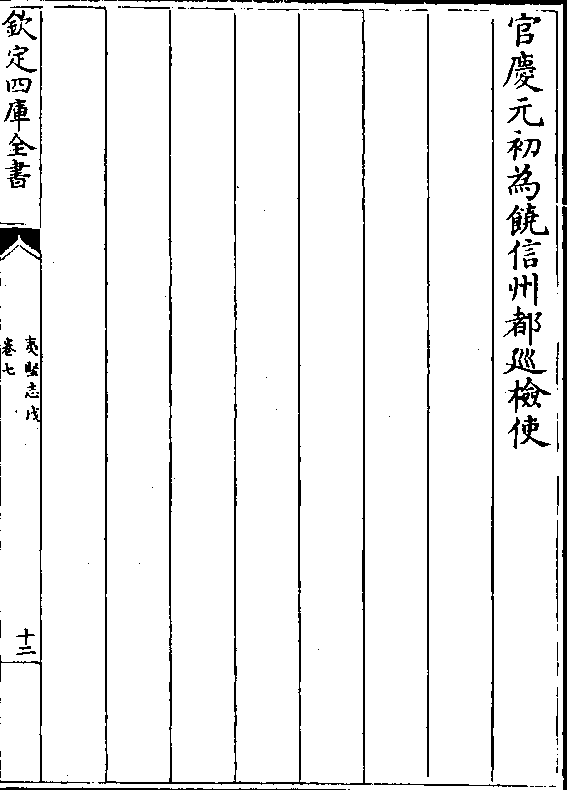 官慶元初為饒信州都廵檢使
欽定四庫全書
夷堅志戊
卷七
十二